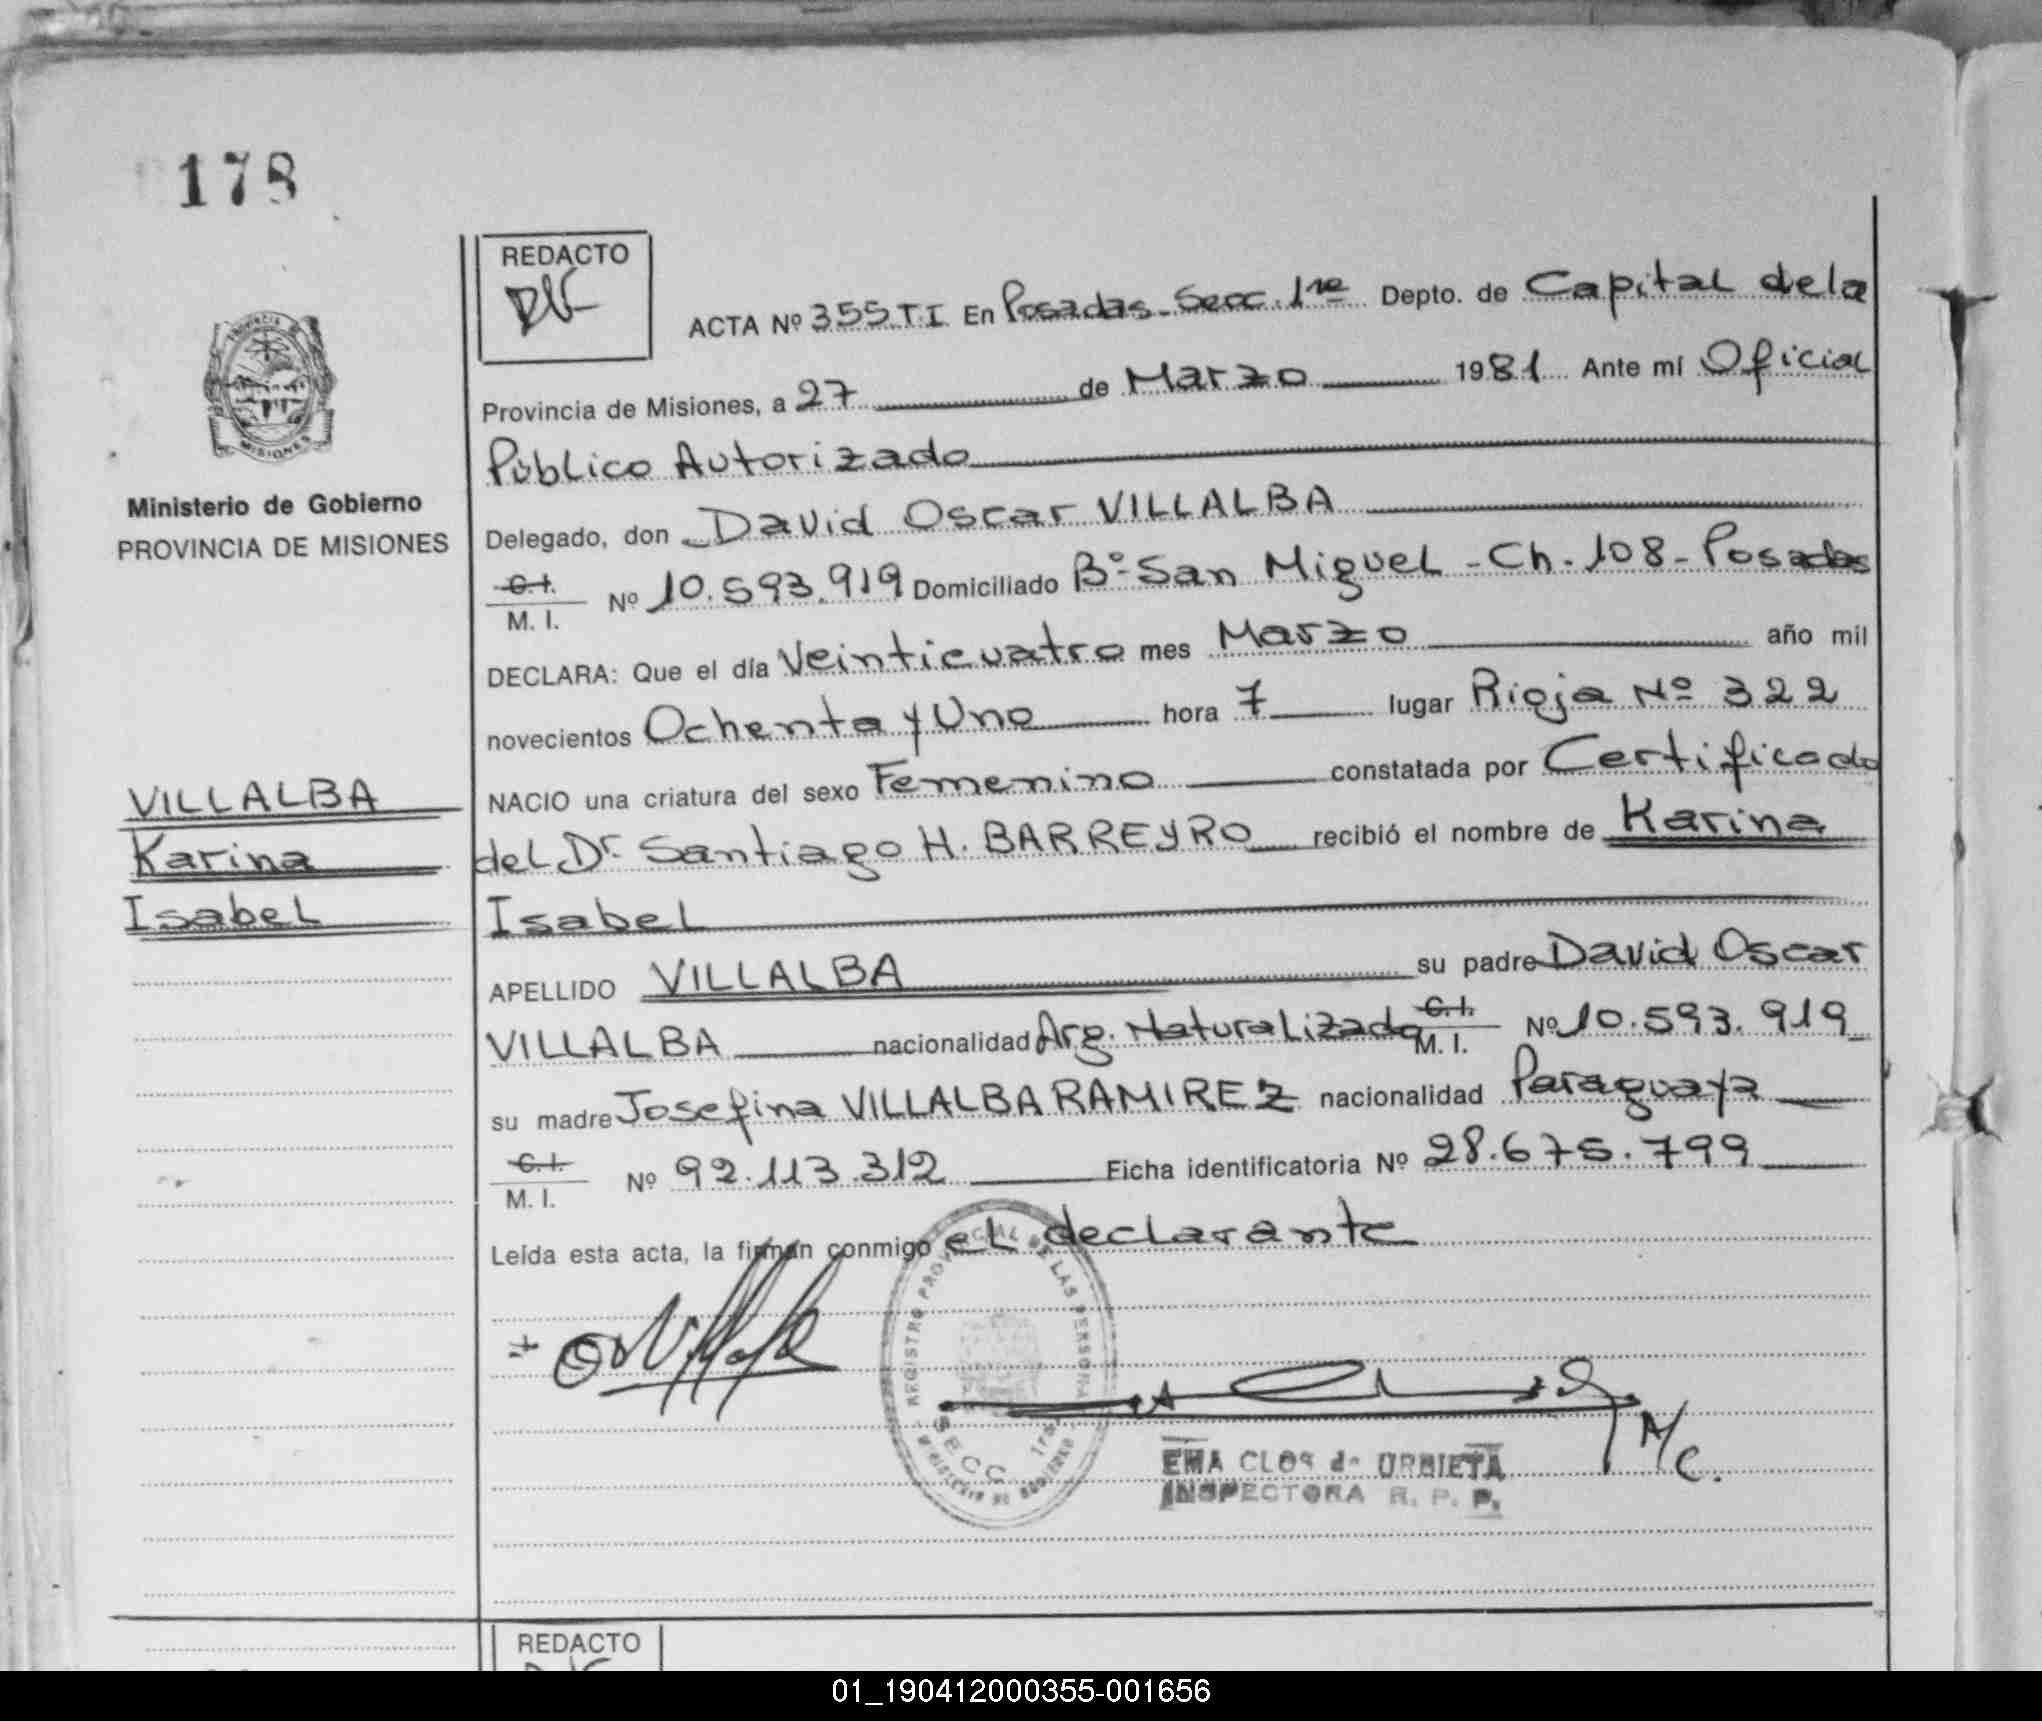 178
REDACTO
ACTA Nº 355 TI En Posadas - Secc. 1ra Depto. de Capital de la
Provincia de Misiones, a 27 de Marzo 1981 Ante mí Oficial
Público Autorizado
Delegado, don David Oscar VILLALBA
C.I. / M. I. Nº 10.593.919 Domiciliado Bº San Miguel - Ch. 108 - Posadas
DECLARA: Que el día Veinticuatro mes Marzo año mil
novecientos Ochenta y Uno hora 7 lugar Rioja Nº 322
NACIO una criatura del sexo Femenino constatada por Certificado
del Dr. Santiago H. BARREYRO recibió el nombre de Karina
Isabel
APELLIDO VILLALBA su padre David Oscar
VILLALBA nacionalidad Arg. Naturalizado C.I. / M. I. Nº 10.593.919
su madre Josefina VILLALBA RAMIREZ nacionalidad Paraguaya
C.I. / M. I. Nº 92.113.312 Ficha identificatoria Nº 28.675.799
Leída esta acta, la firman conmigo el declarante
PROVINCIA DE
MISIONES
Ministerio de Gobierno
PROVINCIA DE MISIONES
VILLALBA
Karina
Isabel
REGISTRO PROVINCIAL DE LAS PERSONAS
SECC 1ra
MINISTERIO DE GOBIERNO
EMA CLOS de URBIETA
INSPECTORA R. P. P.
REDACTO
01_190412000355-001656